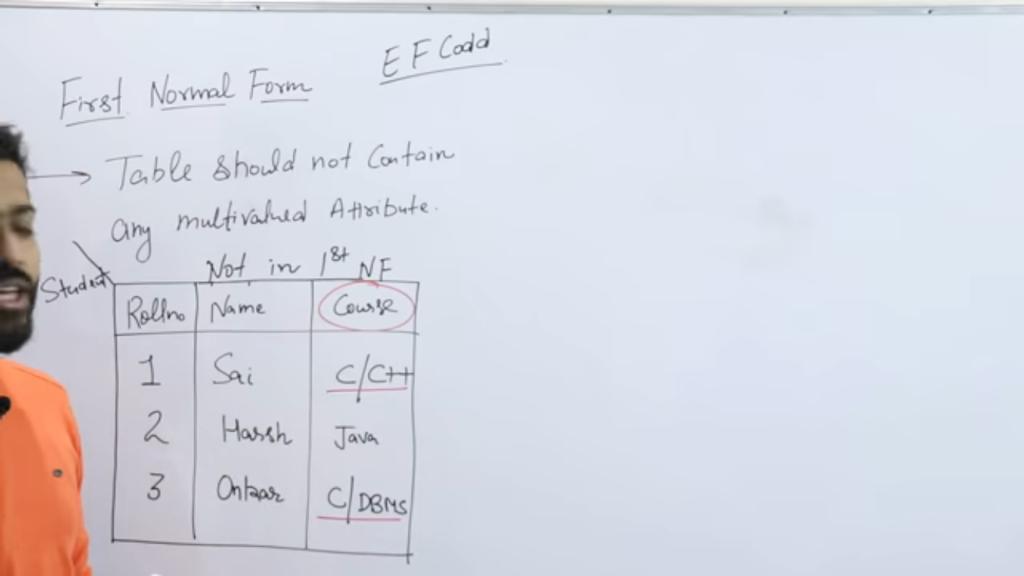 E F Codd
First Normal Form
Table should not Contain
any multivalued Attribute.
Not in 1st NF
Student
Rollno Name Course
1 Sai C/C++
2 Harsh Java
3 Onkar C/DBMS